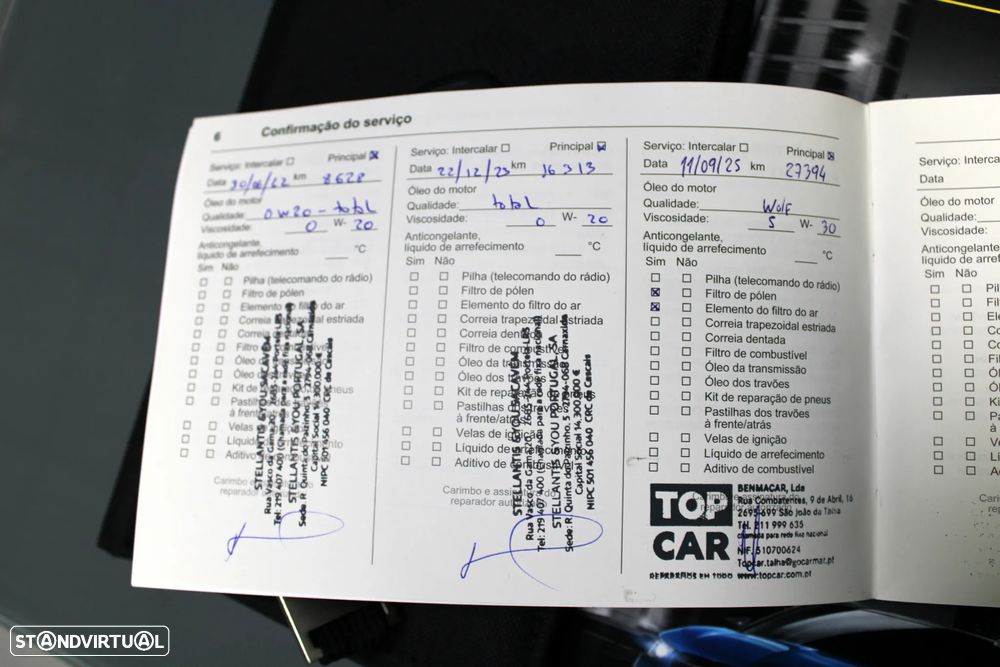 6 Confirmação do serviço
Serviço: Intercalar Principal
Data 30/06/22 km 8628
Óleo do motor
Qualidade: 0w20 - total
Viscosidade: 0 W- 20
Anticongelante,
líquido de arrefecimento °C
Sim Não
Pilha (telecomando do rádio)
Filtro de pólen
Elemento do filtro do ar
Correia trapezoidal estriada
Correia
Filtro
Óleo
Óleo dos
Kit de pneus
Pastilhas
à frente/atrás
Velas
Líquido
Aditivo
STELLANTIS &YOU SACAVEM
Rua Vasco da Gama, 20
STELLANTIS &YOU PORTUGAL, SA
Capital Social 14.300.000 €
NIPC 501 456 040 - CRC de Cascais
Serviço: Intercalar Principal
Data 22/12/23 km 16313
Óleo do motor
Qualidade: total
Viscosidade: 0 W- 20
Anticongelante,
líquido de arrefecimento °C
Sim Não
Pilha (telecomando do rádio)
Filtro de pólen
Elemento do filtro do ar
Correia trapezoidal estriada
Correia dentada
Filtro de combustível
Óleo da transmissão
Óleo dos travões
Kit de reparação de pneus
Pastilhas dos travões
à frente/atrás
Velas de ignição
Líquido de arrefecimento
Aditivo de combustível
Carimbo e assinatura do
reparador autorizado
STELLANTIS &YOU SACAVEM
Rua Vasco da Gama, 20
Tel: 219 407 400 (Chamada para a rede fixa nacional)
STELLANTIS &YOU PORTUGAL, SA
Capital Social 14.300.000 €
NIPC 501 456 040 - CRC de Cascais
Serviço: Intercalar Principal
Data 11/09/25 km 27394
Óleo do motor
Qualidade: Wolf
Viscosidade: 5 W- 30
Anticongelante,
líquido de arrefecimento °C
Sim Não
Pilha (telecomando do rádio)
Filtro de pólen
Elemento do filtro do ar
Correia trapezoidal estriada
Correia dentada
Filtro de combustível
Óleo da transmissão
Óleo dos travões
Kit de reparação de pneus
Pastilhas dos travões
à frente/atrás
Velas de ignição
Líquido de arrefecimento
Aditivo de combustível
Carimbo e assinatura do
reparador
TOP
CAR
REPARAMOS EM TODO
BENMACAR, Lda
Rua Combatentes, 9 de Abril, 16
2695-699 São João da Talha
Tel. 211 999 635
chamada para rede fixa nacional
NIF. 510700624
Topcar.talha@gocarmat.pt
www.topcar.com.pt
Serviço: Interca
Data
Óleo do motor
Qualidade:
Viscosidade:
Anticongelante
líquido de arref
Sim Não
STANDVIRTUAL